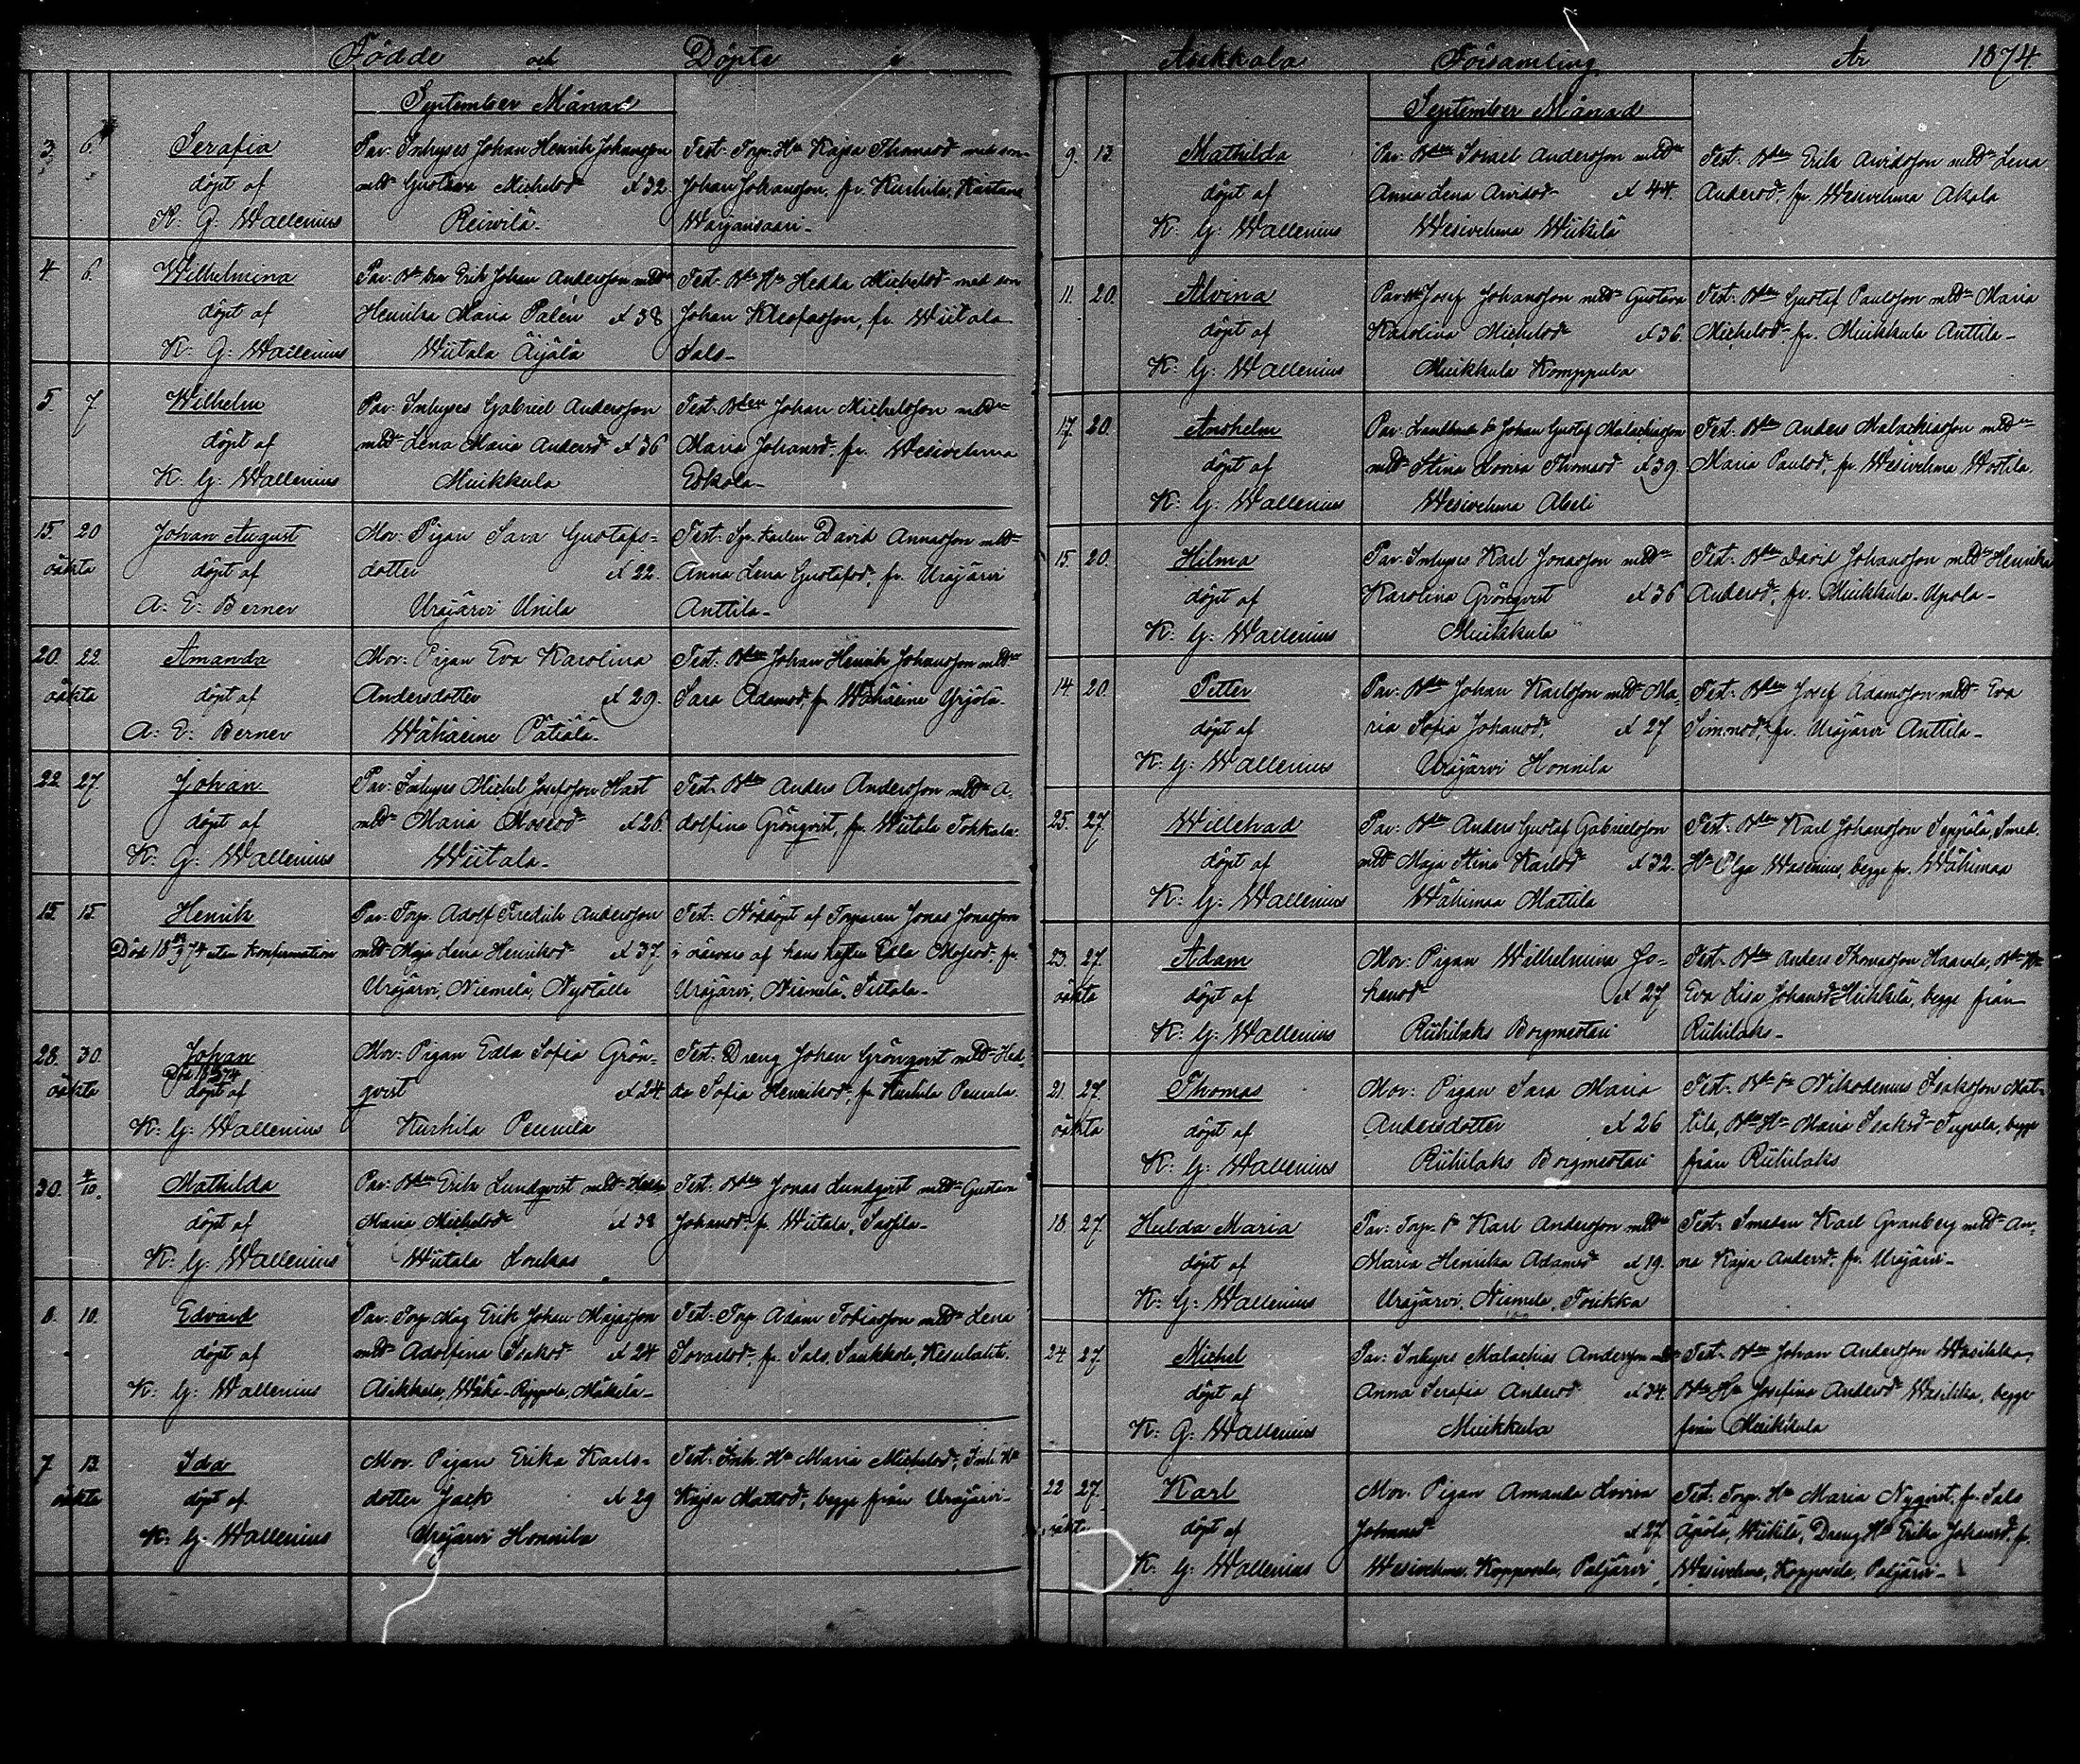 Födde och Döpte i
September Månad
3. 6. Serafia
döpt af
K: G: Wallenius
Par: Inhyses Johan Henrik Johansson
md Gustava Michelsd Æ 32
Reivilä
Test: Torp. Hu Kajsa Thomasd med son
Johan Johansson, fr. Kurhila,
Warjansaari
4. 6. Wilhelmina
döpt af
K: G: Wallenius
Par: Erik Johan Andersson md
Henrika Maria Palén Æ 38
Wiitala Äijälä
Test: Bd Hu Hedda Michelsd med son
Johan Kleofasson, fr. Wiitala
Sals
5. 7 Wilhelm
döpt af
K: G: Wallenius
Par: Inhyses Gabriel Andersson
md Lena Maria Andersd Æ 36
Muikkula
Test: Bden Johan Michelsson md
Maria Johansd fr. Wesivehma
Eskola
15. 20 Johan August
oäkta döpt af
A: E: Berner
Mor: Pigan Sara Gustafs-
dotter Æ 22.
Urajärvi Unila
Test: David Annasson md
Anna Lena Gustafsd, fr. Urajärvi
Anttila
20. 22. Amanda
oäkta döpt af
A: E: Berner
Mor: Pigan Eva Karolina
Andersdotter Æ 29.
Wähäeine Pätiälä
Test: Bden Johan Henrik Johansson md
Sara Adamsd, fr Wähäeine Yrjölä
22. 27. Johan
döpt af
K: G: Wallenius
Par: Inhyses Michel Josefsson Hast
md Maria Mosesd Æ 26.
Wiitala
Test: Bden Anders Andersson md A-
dolfina Grönqvist, fr. Wiitala Tokkala
15. 15. Henrik
Död 18 /9 74 utan konfirmation
Par: Torp. Adolf Fredrik Andersson
md Maja Lena Henriksd Æ 37.
Urajärvi, Niemelä, Nyställe
Test: Nöddöpt af Torparen Jonas Jonasson
i närvaro af hans hustru Edla fr.
Urajärvi, Niemelä,
28. 30. Johan
oäkta döpt af
K: G: Wallenius
Mor: Pigan Edla Sofia Grön-
qvist Æ 24.
Kurhila Pennila
Test: Dreng Johan Grönqvist md Hed-
da Sofia Henriksd fr Kurhila Pennila
30. 4/10. Mathilda
döpt af
K: G: Wallenius
Par: Bden Erik Lundqvist md
Maria Michelsd Æ 38
Wiitala Loukas
Test: Bden Jonas Lundqvist md Gustava
Johansd fr Wiitala,
8. 10. Edvard
döpt af
K: G: Wallenius
Par: Torp. Måg Erik Johan Majasson
md Adolfina Isaksd Æ 24
Asikkala, Wähä-Äijälä, Mäkelä
Test: Torp. Adam Tobiasson md Lena
fr. Sals, Saukkola,
7 13. Ida
oäkta döpt af
K: G: Wallenius
Mor: Pigan Erika Karls-
dotter Jack Æ 29
Urajärvi Honnila
Test: Inh. Hu Maria Michelsd, Inh. Hu
Kajsa Mattsd, begge från Urajärvi
Asikkala Församling År 1874
September Månad
9. 13. Mathilda
döpt af
K: G: Wallenius
Par: Bden Israel Andersson md
Anna Lena Arvidsd Æ 44.
Wesivehma Wiikilä
Test: Bden Erik Arvidsson md Lena
Andersd, fr. Wesivehma Akala
11. 20. Alvina
döpt af
K: G: Wallenius
Par: Josef Johansson md Gustava
Karolina Michelsd Æ 36.
Muikkula Komppula
Test: Bden Gustaf Paulsson md Maria
Michelsd, fr. Muikkula Anttila
17. 20. Anshelm
döpt af
K: G: Wallenius
Par: Johan Gustaf Malachiasson
md Stina Lovisa Thomasd Æ 39.
Wesivehma Alseli
Test: Bden Anders Malachiasson md
Maria Paulsd, fr. Wesivehma Wostila
15. 20. Hilma
döpt af
K: G: Wallenius
Par: Inhyses Karl Jonasson md
Karolina Grönqvist Æ 36
Muikkula
Test: Bden David Johansson md Henrika
Andersd, fr. Muikkula
14. 20. Petter
döpt af
K: G: Wallenius
Par: Bden Johan Karlsson md Ma-
ria Sofia Johansd. Æ 27
Urajärvi Honnila
Test: Bden Josef Adamsson md Eva
Simonsd, fr. Urajärvi Anttila
25. 27. Willehad
döpt af
K: G: Wallenius
Par: Bden Anders Gustaf Gabrielsson
md Maja Stina Karlsd Æ 32.
Wähimaa Mattila
Test: Bden Karl Johansson Seppälä, Smed.
Hu Olga Wasenius, begge fr. Wähimaa
23. 27. Adam
oäkta döpt af
K: G: Wallenius
Mor: Pigan Wilhelmina Jo-
hansd Æ 27
Riihilaks Borgmestari
Test: Bden Anders Thomasson Haarala, Bde Hu
Eva Lisa Johansd Heikkilä, begge från
Riihilaks
21. 27. Thomas
oäkta döpt af
K: G: Wallenius
Mor: Pigan Sara Maria
Andersdotter Æ 26
Riihilaks Borgmestari
Test: Nikodemus Isaksson Mat-
tila, Bde Hu Maria Isaksd Seppälä, begge
från Riihilaks
18. 27. Hulda Maria
döpt af
K: G: Wallenius
Par: Torp. Karl Andersson md
Maria Henrika Adamsd Æ 19.
Urajärvi, Niemelä, Toukka
Test: Smeden Karl Granberg md An-
na Kajsa Andersd, fr. Urajärvi
24. 27. Michel
döpt af
K: G: Wallenius
Par: Inhyses Malachias Andersson
Anna Serafia Andersd Æ 34.
Muikkula
Test: Bden Johan Andersson Wesikka,
Bde Hu Josefina Andersd Wesikka, begge
från Muikkula
22 27. Karl
oäkta döpt af
K: G: Wallenius
Mor: Pigan Amanda Lovisa
Johansd Æ 27
Wesivehma, Kopposela, Paljärvi
Test: Torp. Hu Maria Nyqvist, fr. Sals
Äijälä, Wiikilä, Dreng Hu Erika Johansd, fr.
Wesivehma, Kopposela, Paljärvi